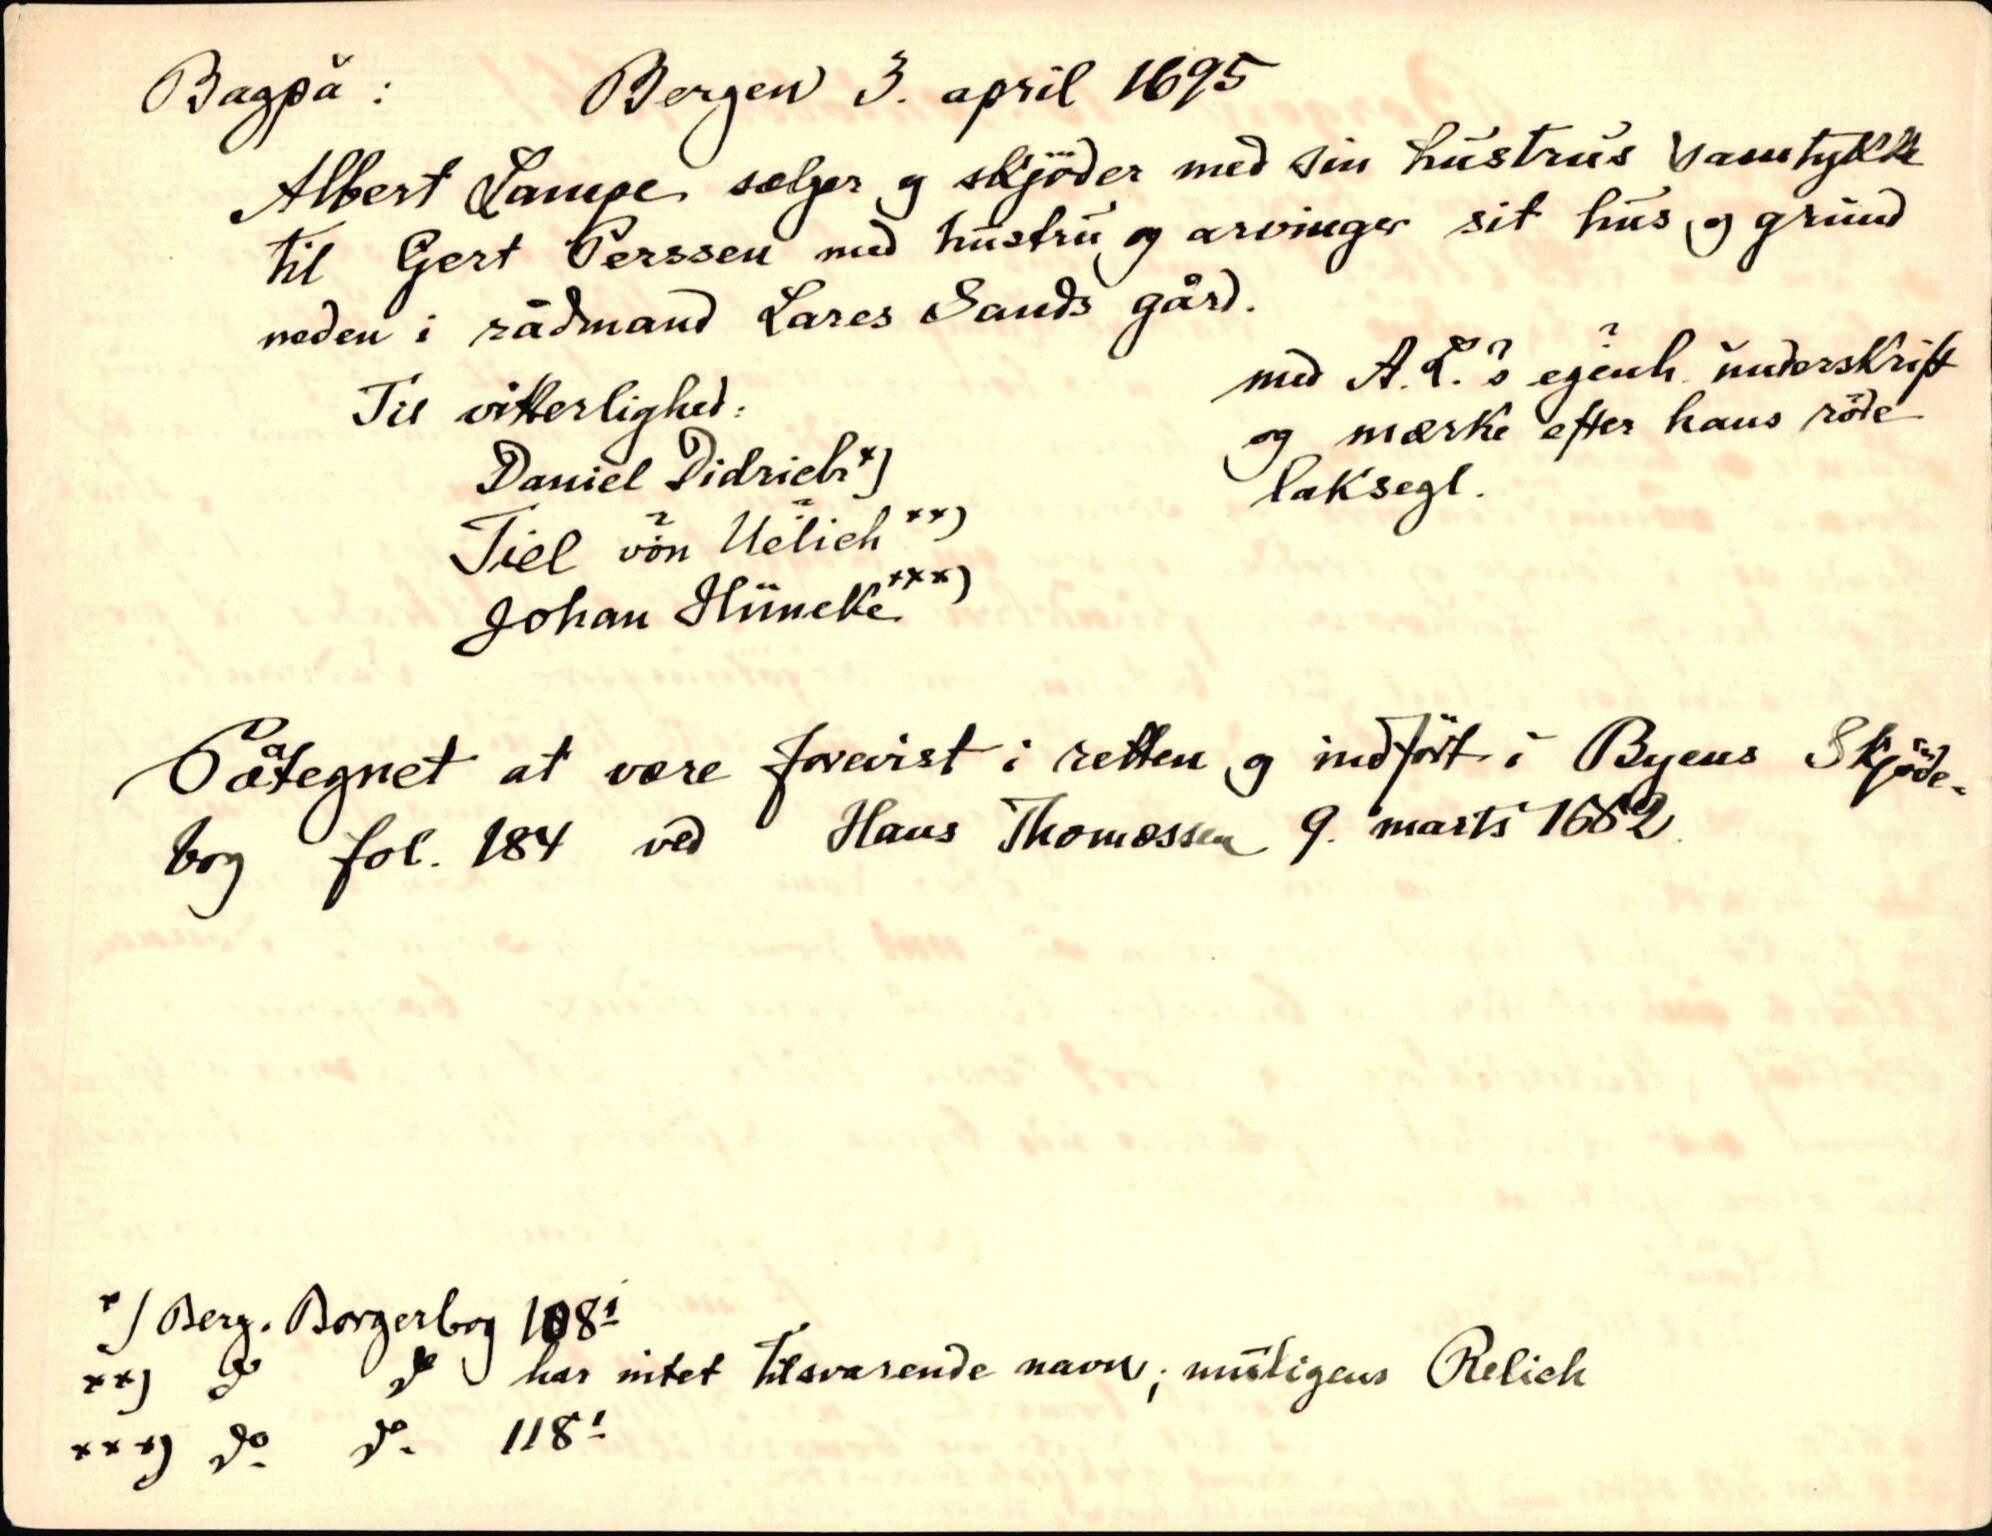 Bagpå : Bergen 3. april 1695
Albert Lampe sælger og skjöder med sin hustrus samtykke
til Gert Perssen med hustru og arvinger sit hus og grund
neden i rådmand Lares Sands gård.
med A. L.'s egenh. underskrift
og mærke efter hans röde
laksegl.
Til vitterlighed:
Daniel Didrichs *)
Tiel von Uelich **)
Johan Hüneke ***)
Påtegnet at være forevist i retten og indfört i Byens Skjöde-
bog fol. 184 ved Hans Thomassen 9. marts 1682.
*) Berg. Borgerbog 108¹
**) do do har intet tilsvarende navn; muligens Relich
***) do. do. 118¹